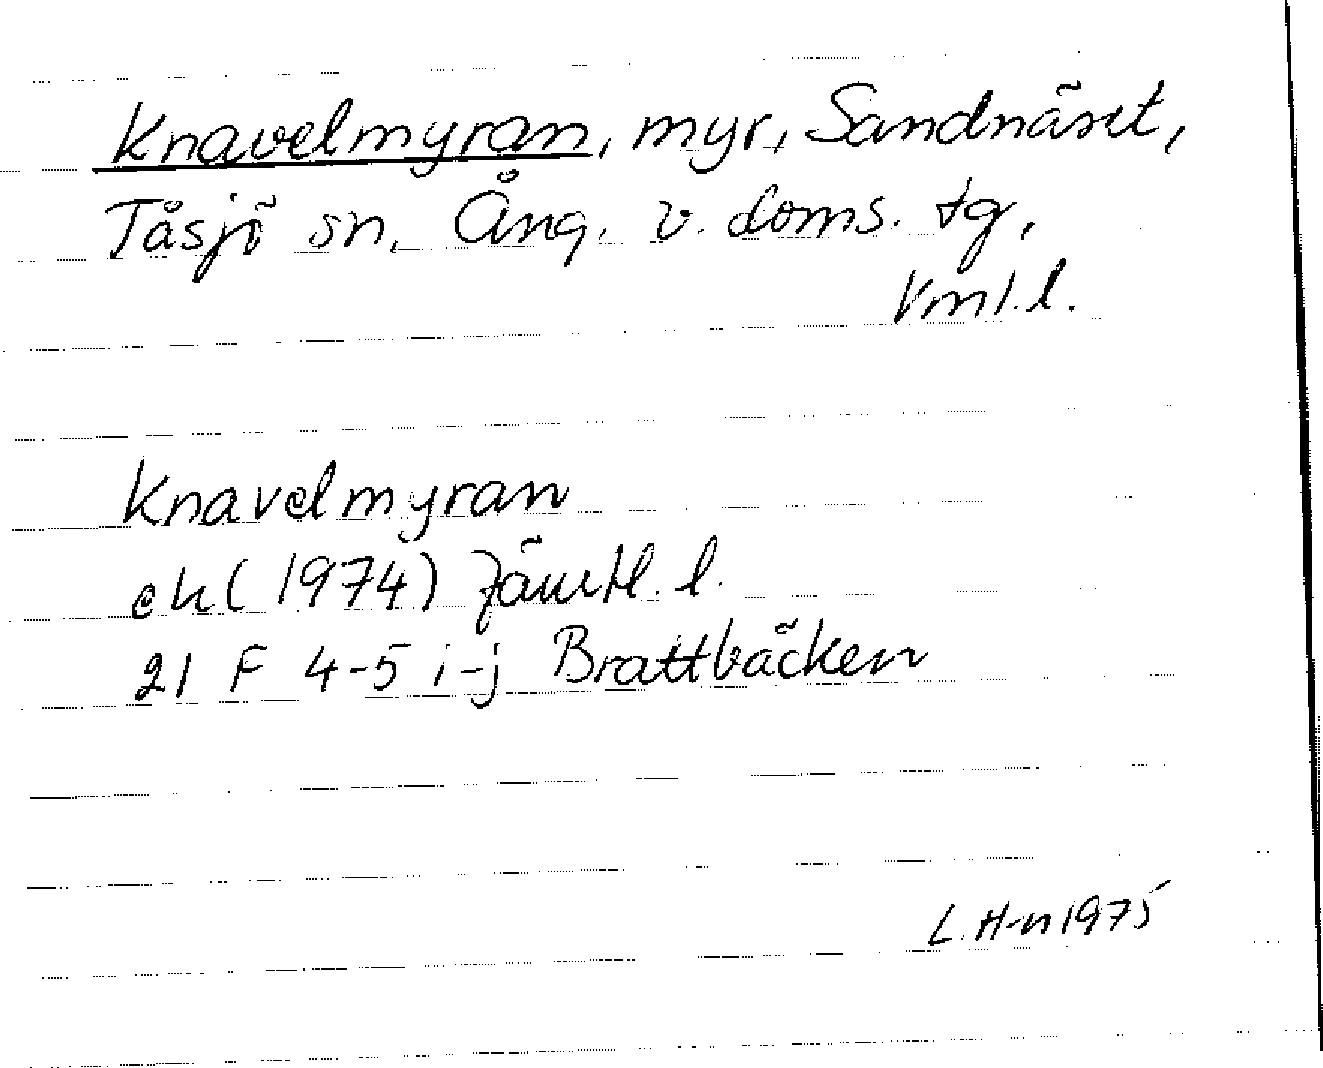 Knavelmyran, myr, Sandnäset,
Tåsjö sn, Ång. v. doms. tg,
Vml. l.
Knavelmyran
ek (1974) Jämtl. l.
21 F 4-5 i-j Brattbäcken
L. H-n 1975